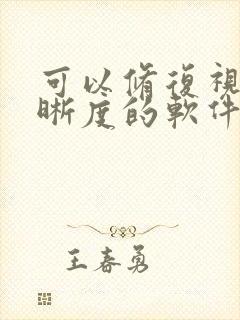 可以脩復視
晰度的軟件
王春勇